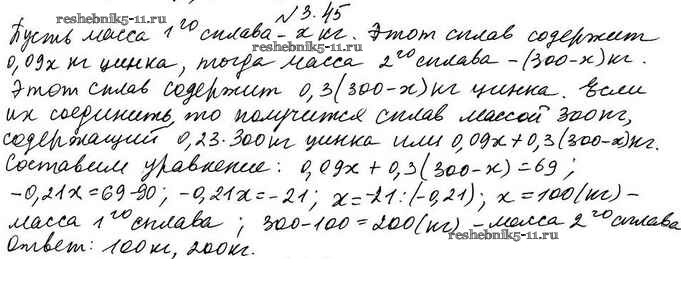 №3.45
reshebnik5-11.ru
Пусть масса 1го сплава - x кг. Этот сплав содержит
0,09x кг цинка, тогда масса 2го сплава - (300-x) кг.
Этот сплав содержит 0,3(300-x) кг цинка. Если
их соединить, то получится сплав массой 300 кг,
содержащий 0,23·300 кг цинка или 0,09x+0,3(300-x) кг.
Составим уравнение: 0,09x+0,3(300-x)=69;
-0,21x=69-90; -0,21x=-21; x=-21:(-0,21); x=100(кг) -
масса 1го сплава; 300-100=200(кг) - масса 2го сплава
reshebnik5-11.ru
reshebnik5-11.ru
Ответ: 100кг, 200кг.